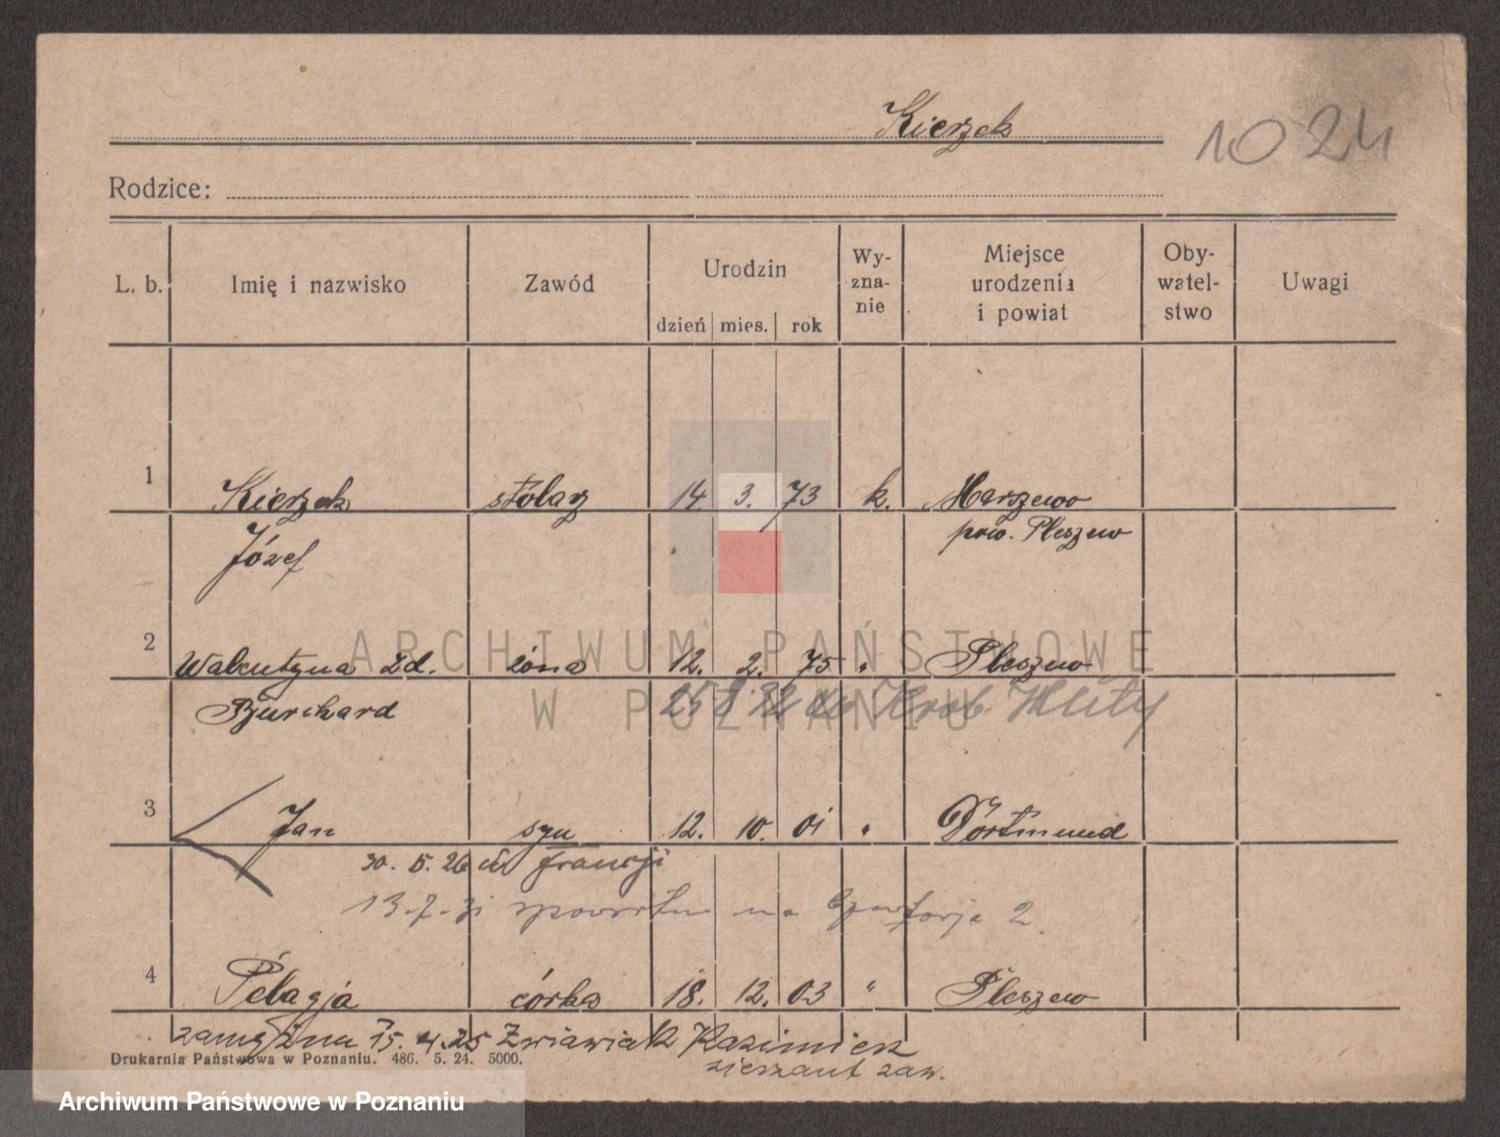 Kierzek
1024
Rodzice:
L. b. Imię i nazwisko Zawód Urodzin dzień mies. rok Wy-zna-nie Miejsce urodzenia i powiat Oby-watel-stwo Uwagi
1 Kierzek stolarz 14 3. 73 k. Marszewo
Józef pow. Pleszew
2 Walentyna zd. żona 12. 2. 75 " Pleszew
Burchard 25 8 32 do
3 Jan syn 12. 10. 01 " Dortmund
30. 5. 26 Francji
13.7.31 na 2
4 Pelagja córka 18. 12. 03 " Pleszew
zamężna 15. 4. 25 Kazimierz
zaw.
Drukarnia Państwowa w Poznaniu. 486. 5. 24. 5000.
ARCHIWUM PAŃSTWOWE
W POZNANIU
Archiwum Państwowe w Poznaniu